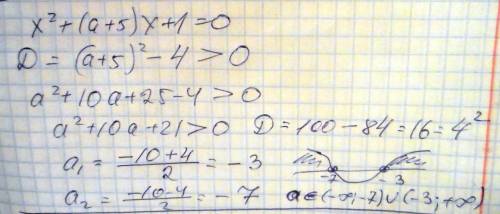 x² + (a+5)x + 1 = 0
D = (a+5)² - 4 > 0
a² + 10a + 25 - 4 > 0
a² + 10a + 21 > 0 D = 100 - 84 = 16 = 4²
a₁ = (-10+4)/2 = -3
-7 -3
a₂ = (-10-4)/2 = -7 a∈(-∞; -7)∪(-3; +∞)